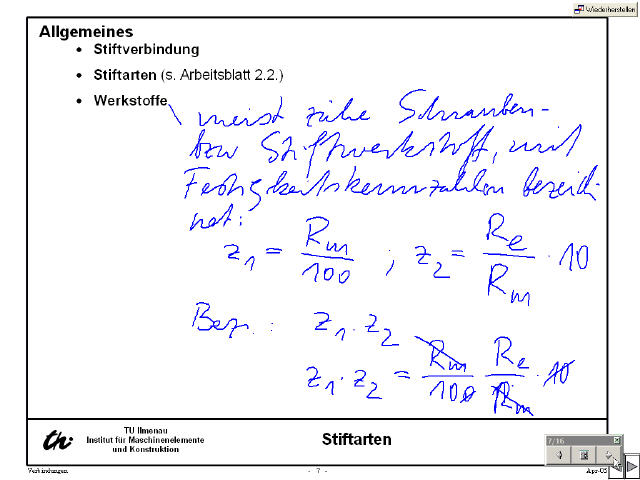 Wiederherstellen
Allgemeines
• Stiftverbindung
• Stiftarten (s. Arbeitsblatt 2.2.)
• Werkstoffe
meist zähe Schrauben-
bzw Stiftwerkstoff, mit
Festigkeitskennzahlen bezeich
net:
z1 = Rm/100 ; z2 = Re/Rm · 10
Bez. : z1 · z2
z1 · z2 = Rm/100 Re/Rm · 10
TU Ilmenau
Institut für Maschinenelemente
und Konstruktion
Stiftarten
7/16
Verbindungen
- 7 -